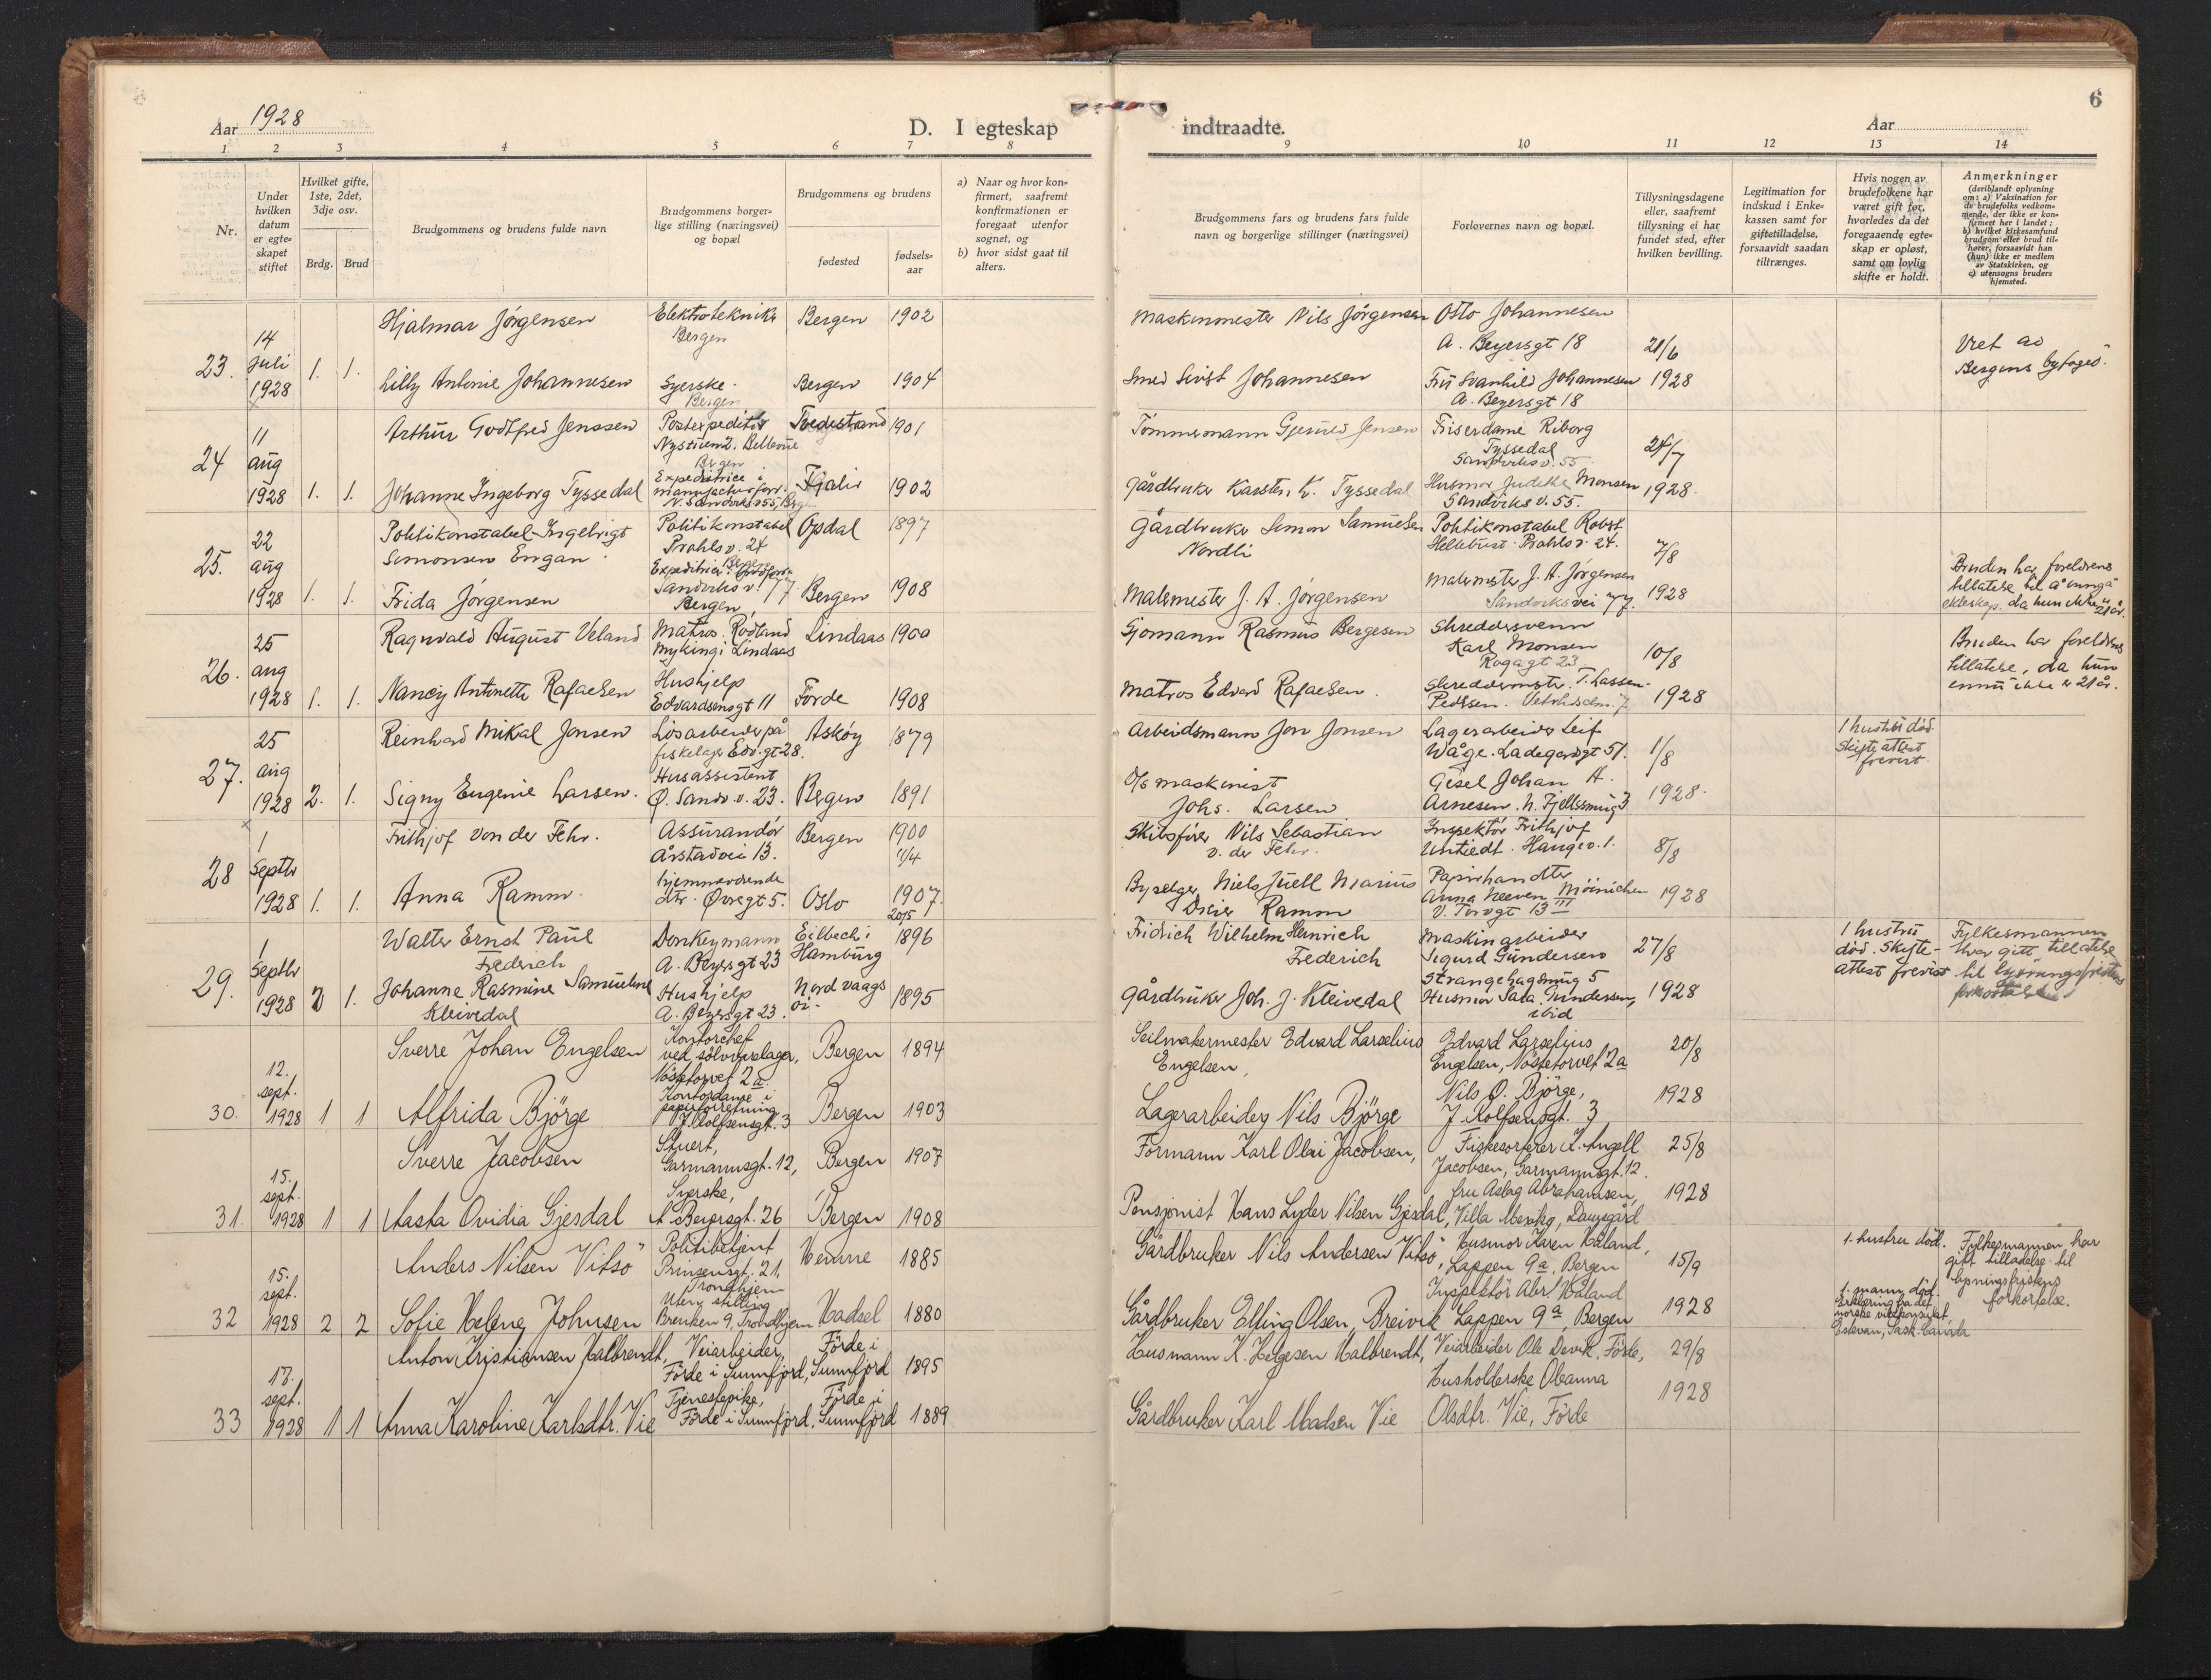 6
Aar 1928
D. I egteskap
indtraadte.
Aar
1 2 3 4 5 6 7 8 9 10 11 12 13 14
Nr.
Under hvilken datum er egte-skapet stiftet
Hvilket gifte, 1ste, 2det, 3dje osv.
Brdg. Brud
Brudgommens og brudens fulde navn
Brudgommens borger-lige stilling (næringsvei) og bopæl
Brudgommens og brudens
fødested
fødsels-aar
a) Naar og hvor kon-firmert, saafremt konfirmationen er foregaat utenfor sognet, og
b) hvor sidst gaat til alters.
Brudgommens fars og brudens fars fulde navn og borgerlige stillinger (næringsvei)
Forlovernes navn og bopæl.
Tillysningsdagene eller, saafremt tillysning ei har fundet sted, efter hvilken bevilling.
Legitimation for indskud i Enke-kassen samt for giftetilladelse, forsaavidt saadan tiltrænges.
Hvis nogen av brudefolkene har været gift før, hvorledes da det foregaaende egte-skap er opløst, samt om lovlig skifte er holdt.
Anmerkninger
(deriblandt oplysning om: a) Vaksination for de brudefolks vedkom-mende, der ikke er kon-firmert her i landet; b) hvilket kirkesamfund brudgom eller brud til-hører, forsaavidt han (hun) ikke er medlem av Statskirken, og c) utensogns bruders hjemsted.
23. 14 Juli 1928 1. 1.
Hjalmar Jörgensen Elektrotekniker Bergen Bergen 1902 Maskinmester Nils Jörgensen Otto Johannesen A. Beyersgt 18 21/6
Lilly Antonie Johannesen Syerske. Bergen Bergen 1904 Smed Sivert Johannesen Frü Svanhild Johannesen A. Beyersgt 18 1928
Viet av Bergens byfoged.
24 11 aug 1928 1. 1.
Arthür Godtfred Jenssen Postexpeditör Bellevüe Bergen Tvedestrand 1901 Tömmermann Jensen Friserdame Riborg Tyssedal Sandviksv. 55 24/7
Johanne Ingeborg Tyssedal Expeditrice i manufacturforr. N. Sandviksv 55, Bergen Fjaler 1902 gårdbruker Karsten K. Tyssedal Husmor Judithe Monsen Sandviks v. 55. 1928.
25. 22 aug 1928 1. 1.
Politikonstabel Ingebrigt Simonsen Engan Politikonstabel Prahls v. 24 Bergen Opdal 1897 gårdbruker Simon Samüelsen Nordli Politikonstabel Robert Hellebust Prahls v. 24. 7/8
Frida Jörgensen Expeditrice Sandviks v. 77 Bergen, Bergen 1908 Malermester J. A. Jörgensen Malermester J. A. Jörgensen Sandviksvei 77. 1928
Brüden har foreldrenes tillatelse til å inngå ekteskap, da hun ikke er 21 år.
26. 25 aug 1928 1. 1.
Ragnvald Aügüst Veland Matros. Rödland Myking i Lindaas Lindaas 1900 Sjömann Rasmüs Bergesen Skreddersvenn Karl Monsen Rogagt 23 10/8
Nancy Antonette Rafaelsen Hushjelp Edvardsensgt 11 Förde 1908 Matros Edvard Rafaelsen. Skreddermester T. Lassen-Pedersen. 1928
Bruden har foreldrenes tillatelse, da hün ennü ikke er 21 år.
27. 25 aug 1928 2. 1.
Reinhard Mikal Jonsen Lösarbeider på fiskelager Edv. gt 28. Asköy 1879 Arbeidsmann Jon Jonsen Lagerarbeider Leif Wåge. Ladegårdsgt 51. 1/8
1 hustrü död. Skifteattest frevist.
Signy Eugenie Larsen. Husassistent Ø. Sandv. v. 23. Bergen 1891 maskinist Johs. Larsen Johan A. Arnesen. N. Fjellsmüg 3 1928.
28 1 Septbr 1928 1. 1.
Frithjof von der Fehr. Assürandör Årstadvei 13. Bergen 1900 Skibsförer Nils Sebastian v. der Fehr. Inspektör Frithjof Untiedt. Haugev. 1. 8/8
Anna Ramm. hjemmeværende dtr. Øvregt 5. Oslo 1907. 20/5 Byselger Niels Jüell Mariüs Ramm Papirhandler Anna Møinichen V. Torvgt 13 III 1928
29. 1 Septbr 1928 2 1.
Walter Ernst Paül Frederich Donkeymann A. Beyersgt 23 Eilbech i Hamburg 1896 Fridrich Wilhelm Heinrich Frederich Maskinarbeider Sigurd Gündersen Strangehagsmüg 5 27/8
1 hustrü död. Skifte-attest frevist
Fylkesmannen har gitt tillatelse til lysningsfristens forkortelse
Johanne Rasmine Samüeline Kleivedal Hushjelp A. Beyersgt 23. Nordvaagsöi. 1895 gårdbrüker Joh. J. Kleivedal Husmor Sara Gündersen, ibid 1928
30. 12. sept. 1928 1 1
Sverre Johan Engelsen Kontorchef ved sölvvarelager, Nöstetorvet 2a Bergen 1894 Seilmakermester Edvard Larselius Engelsen, Edvard Larselius Engelsen, Nöstetorvet 2a 20/8
Alfrida Björge Kontordame i papirforretning J. Rolfsensgt. 3 Bergen 1903 Lagerarbeider Nils Björge Nils O. Björge, J. Rolfsensgt. 3 1928
31. 15. sept. 1928 1 1
Sverre Jacobsen Stuert, Garmannsgt. 12, Bergen 1907 Formann Karl Olai Jacobsen, Fiskesorterer K. Angell Jacobsen, Garmannsgt. 12. 25/8
Aasta Ovidia Gjesdal Syerske, A Beyersgt. 26 Bergen 1908 Pensjonist Hans Lyder Nilsen Gjesdal, fru Aslag Abrahamsen, Villa Mexiko, Damsgård 1928
32 15. sept. 1928 2 2
Anders Nilsen Vitsö Politibetjent Prinsensgt. 21, Trondhjem Hemne 1885 Gårdbruker Nils Andersen Vitsö, Husmor Karen Håland, Lappen 9a, Bergen 15/9
1. hustru död.
Fylkesmannen har gitt tilladelse til lysningsfristens forkortelse.
Sofie Helene Johnsen Uten stilling Trondhjem Hadsel 1880 Gårdbruker Elling Olsen, Breivik Inspektör Abr. Håland Lappen 9a, Bergen 1928
1. mann död. Erklæring fra det norske vicekonsulat, Estevan, Sask. Canada
33 17. sept. 1928 1 1
Anton Kristiansen Halbrendt, Veiarbeider, Förde i Sunnfjord, Förde i Sunnfjord 1895 Husmann K. Helgesen Halbrendt, Veiarbeider Ole Devik, Förde, 29/8
Anna Karoline Karlsdtr. Vie Tjenestepike, Förde i Sunnfjord, Förde i Sunnfjord 1889 Gårdbruker Karl Madsen Vie Husholderske Oleanna Olsdtr. Vie, Förde 1928